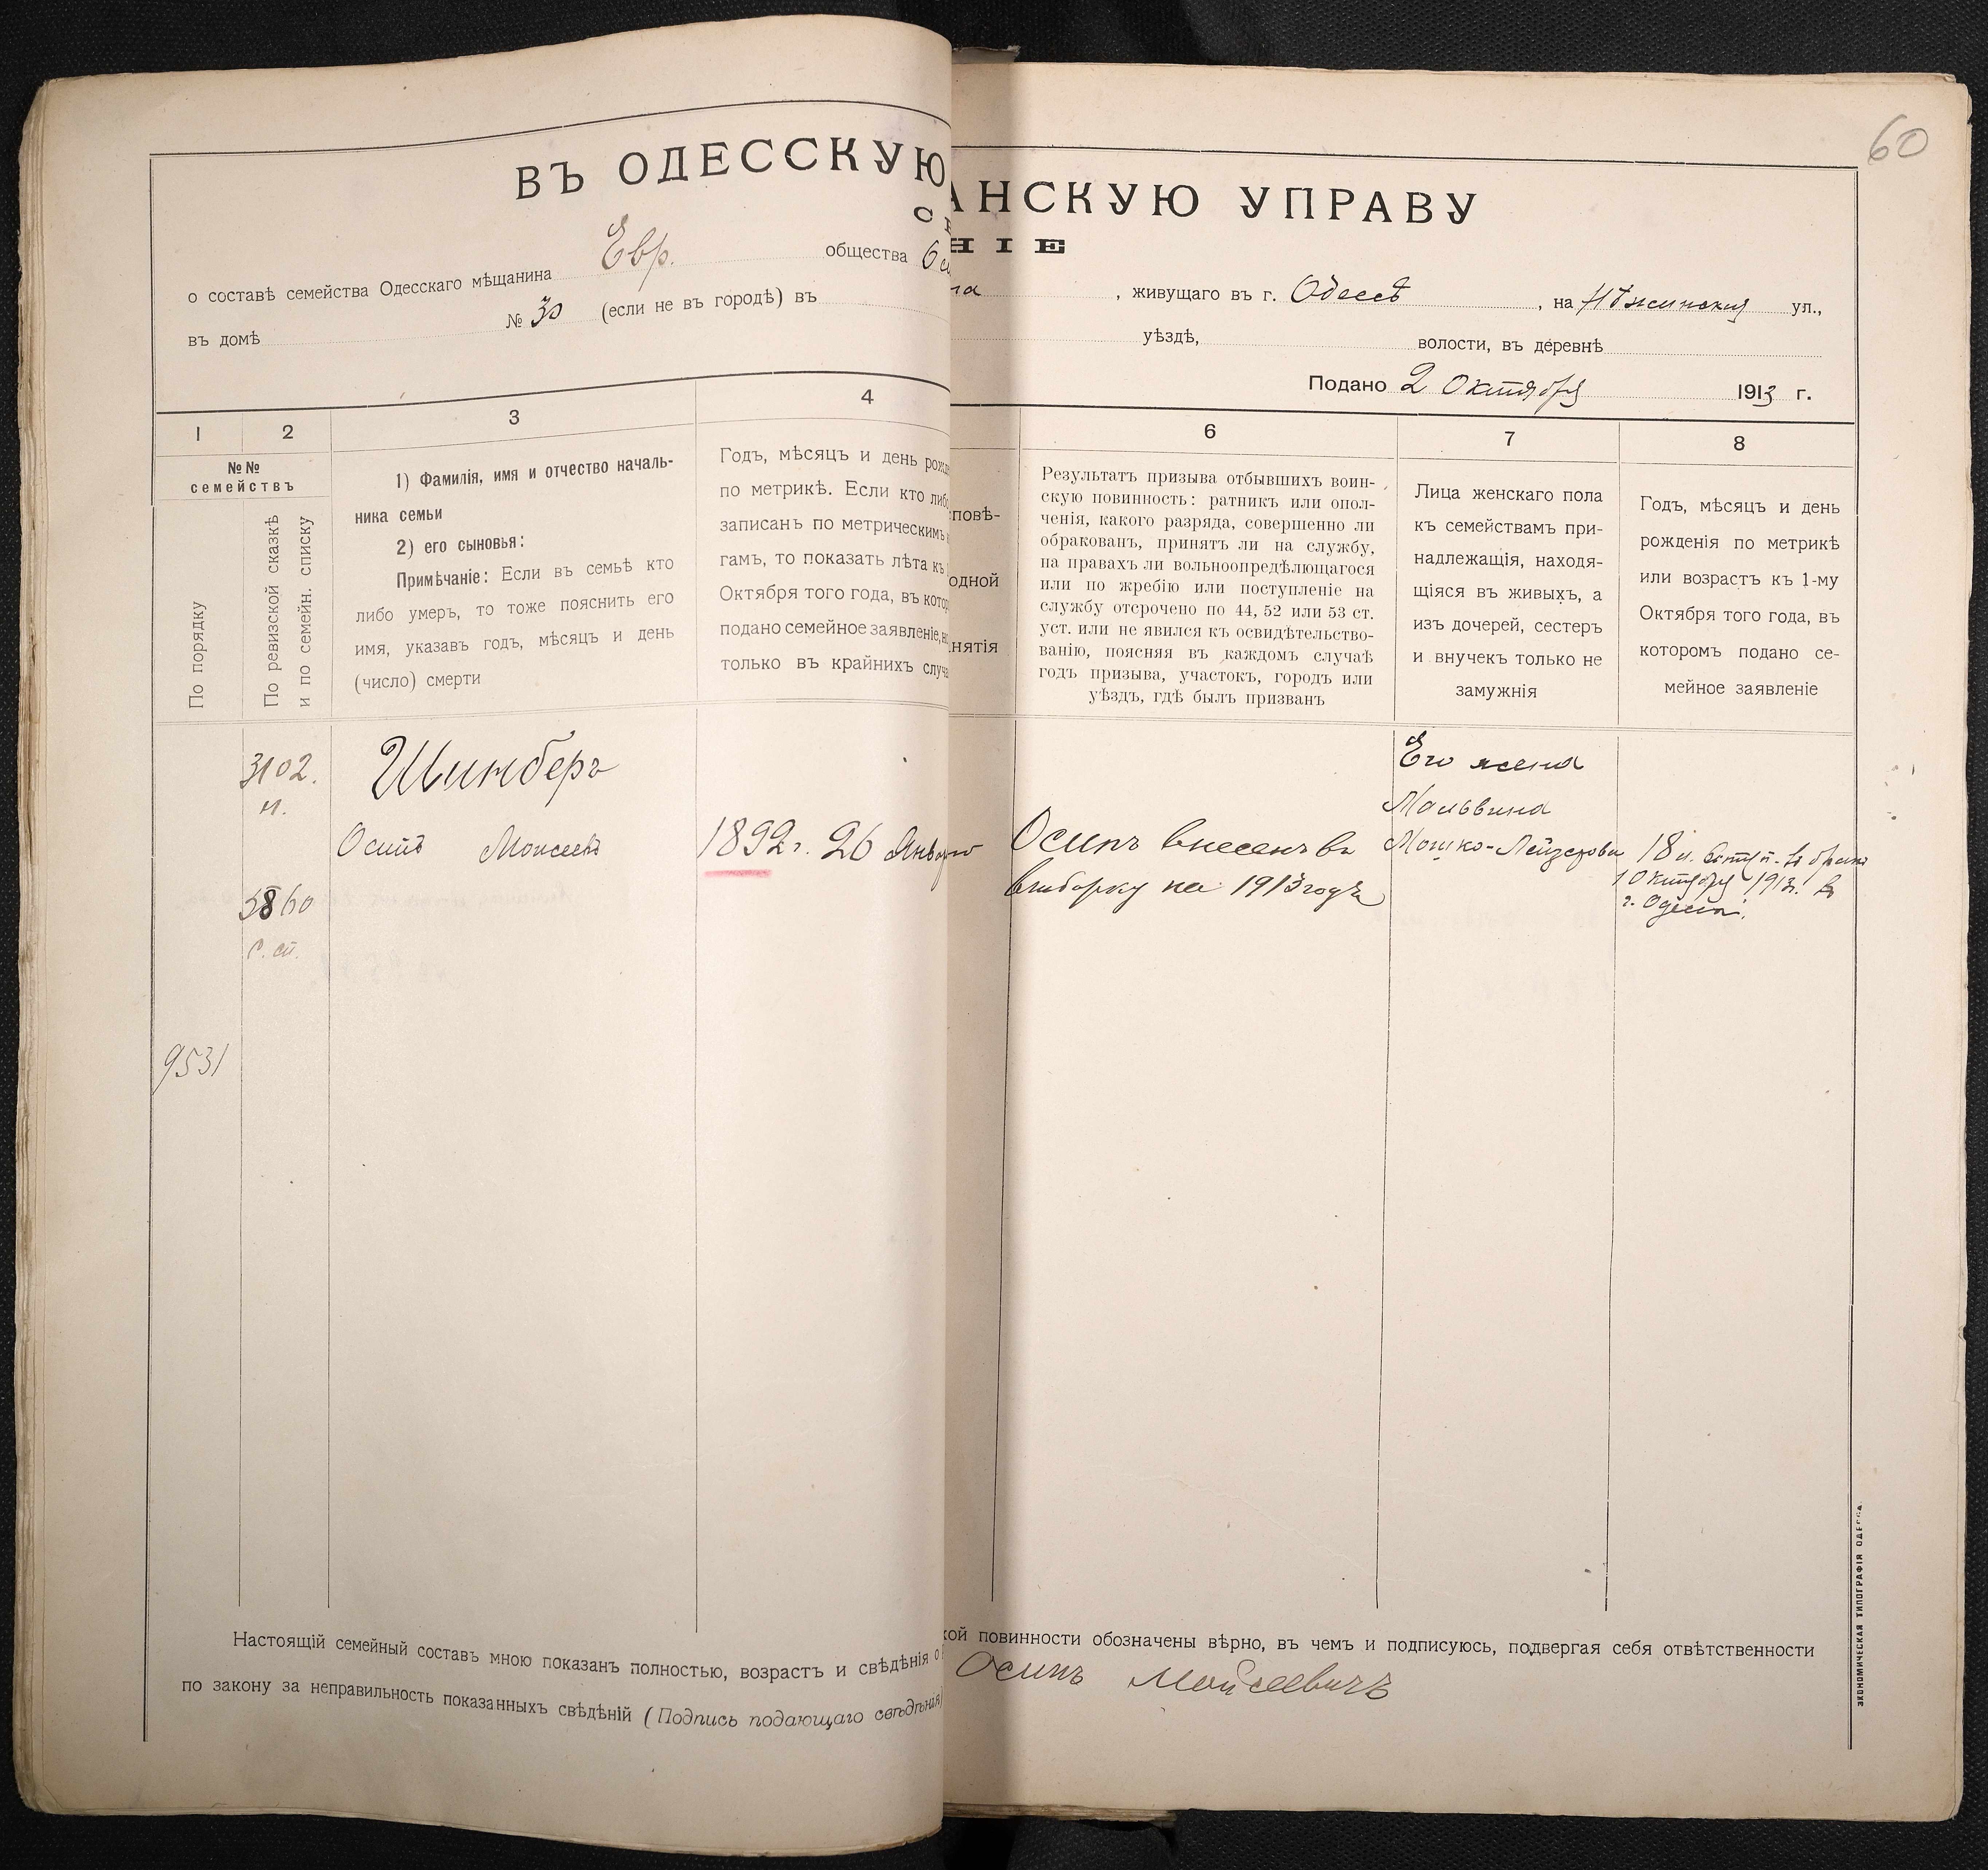 60
ВЪ ОДЕССКУЮ
АНСКУЮ УПРАВУ
НІЕ
о составѣ семейства Одесскаго мѣщанина Евр. общества
, живущаго въ г. Одессѣ, на Нѣжинской ул.,
въ домѣ № 30 (если не въ городѣ) въ
уѣздѣ, волости, въ деревнѣ
Подано 2 Октября 1913 г.
1
2
3
4
6
7
8
№№
семействъ
По порядку
По ревизской сказкѣ
и по семейн. списку
1) Фамилія, имя и отчество началь-
ника семьи
2) его сыновья:
Примѣчаніе: Если въ семьѣ кто
либо умеръ, то тоже пояснить его
имя, указавъ годъ, мѣсяцъ и день
(число) смерти
Годъ, мѣсяцъ и день рожд
по метрикѣ. Если кто либо
записанъ по метрическимъ
гамъ, то показать лѣта къ
Октября того года, въ котор
подано семейное заявленіе,
только въ крайнихъ случа
повѣ-
одной
нятія
Результатъ призыва отбывшихъ воин-
скую повинность: ратникъ или опол-
ченія, какого разряда, совершенно ли
обракованъ, принятъ ли на службу,
на правахъ ли вольноопредѣляющагося
или по жребію или поступленіе на
службу отсрочено по 44, 52 или 53 ст.
уст. или не явился къ освидѣтельство-
ванію, поясняя въ каждомъ случаѣ
годъ призыва, участокъ, городъ или
уѣздъ, гдѣ былъ призванъ
Лица женскаго пола
къ семействамъ при-
надлежащія, находя-
щіяся въ живыхъ, а
изъ дочерей, сестеръ
и внучекъ только не
замужнія
Годъ, мѣсяцъ и день
рожденія по метрикѣ
или возрастъ къ 1-му
Октября того года, въ
которомъ подано се-
мейное заявленіе
3102.
Шинберг
Осипъ Моисеевъ
1892 г. 26 Января
5860
9531
Осипъ внесенъ въ
выборку на 1913 годъ
Его жена
Мальвина
Мошко-Лейзерова
18 л. вступ. въ бракъ
1 Октября 1913 г. в
г. Одессѣ.
Настоящій семейный составъ мною показанъ полностью, возрастъ и свѣдѣнія о
кой повинности обозначены вѣрно, въ чемъ и подписуюсь, подвергая себя отвѣтственности
по закону за неправильность показанныхъ свѣдѣній (Подпись подающаго свѣдѣнія)
Осипъ Мойсеевичъ
ЭКОНОМИЧЕСКАЯ ТИПОГРАФІЯ ОДЕССА.